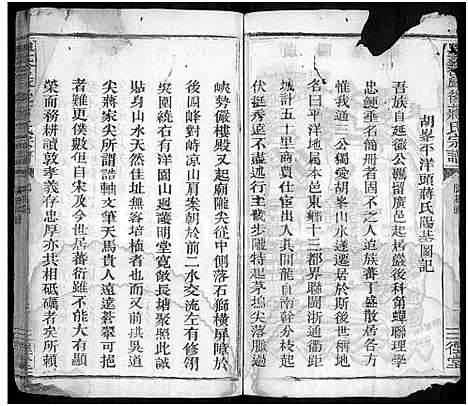 胡峯平洋頭蔣氏陽基圖記
吾族自延徽公觀畱廣邑起居嚴後科第蟬聯理學
忠鯁垂名簡冊者固不乏人迪家者蕃丁盛散居者
惟遜通二公獨愛胡峯山水遂遷居於斯後世因
名曰平洋地屬本邑東鄉十三都界聯閩浙通衢距
城計五十里商賈往來不絕其龍自南幹分枝起
伏挺秀遠不盡述近則歩歩隴特起茅塢尖落脈過
峽勢嚴樓殿又起廟隴尖從中側落石獅橫屏暐於
後四峰對峙涼山昇案朝於前二水交流左有修翎
吳園繞右有洋園山廻護明堂寬敞長塘聚照此誠
貼身山水天然佳址無容培植者也而又前拱吳道
尖蔣家尖所謂誥軸文筆天馬貴人遠遠蒼翠可挹
者雖更僕數但自宋及今世居蕃衍雖不能大有顯
榮而務耕讀敦孝義存忠厚亦共相砥礪者矣所賴